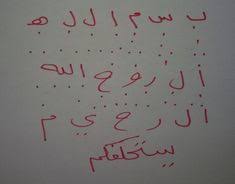 ب س م ا ل ل ه
ا ل ر و ح الله
ا ل ر ح ي م
يستخلفكم